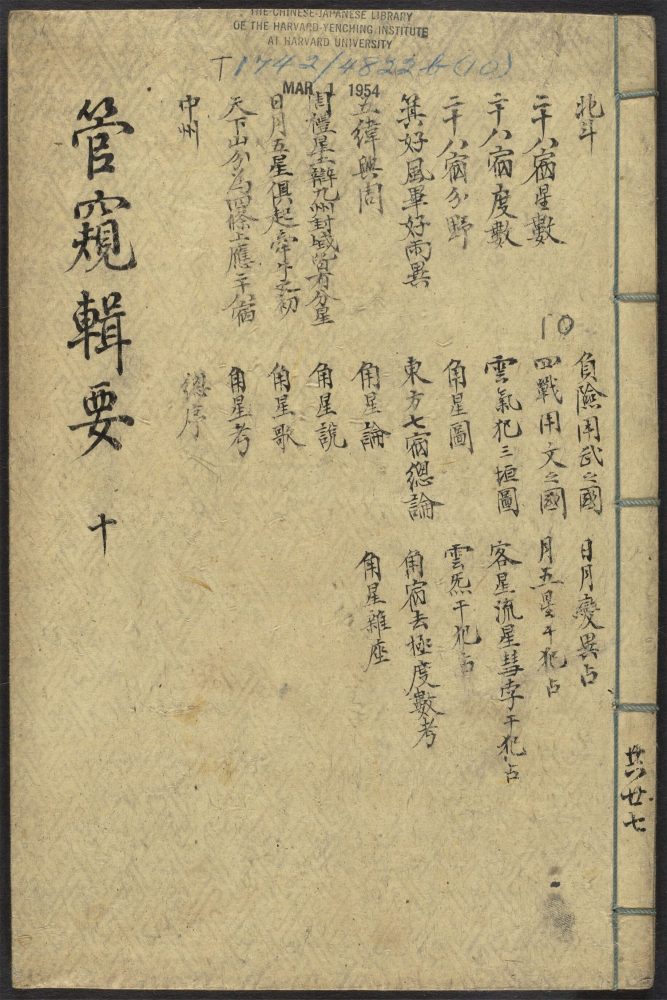 THE CHINESE-JAPANESE LIBRARY
OF THE HARVARD-YENCHING INSTITUTE
AT HARVARD UNIVERSITY
T1742/4822b(10)
MAR 1 1954
北斗
二十八宿星數
二十八宿度數
二十八宿分野
箕好風畢好雨異
五緯興周
周禮星土辯九州封域皆有分星
日月五星俱起牽牛之初
天下山分為四條上應二十八宿
中州
10
負險用武之國
四戰用文之國
雲氣犯三垣圖
角星圖
東方七宿總論
角星論
角星說
角星歌
角星考
總序
日月變異占
月五星干犯占
客星流星彗孛干犯占
雲炁干犯占
角宿去極度數考
角星雜座
管窺輯要 十
共廿七